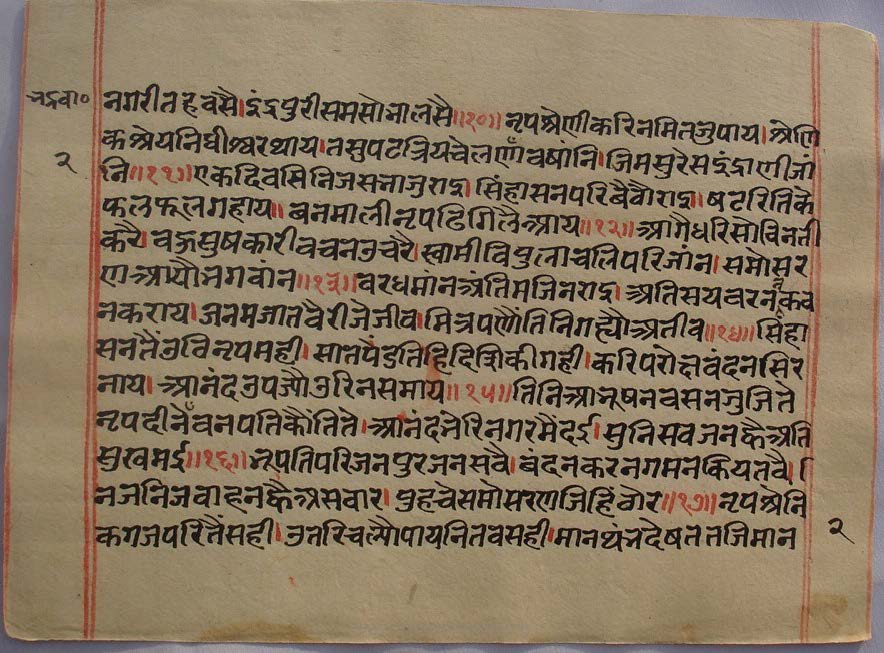 चद्रवा० नगरी तह वसै। इंद्रपुरी सम सो भा लसै॥१०॥ नृप श्रेणीक रिनमित जु पाय। श्रेणि
२ क श्रेय निधीश्वर थाय। तसु पट त्रिय चेलणाँ वषांनि। जिम सुरेस इंद्राणी जां
नि॥११॥ एक दिवसि निज सभा जु राइ। सिंहासन परि बैठौ राइ। षट रिति के
फल फूल गहाय॥ वनमाली नृप ढिगि लै आय॥१२॥ आगै धरि सो विनती
करै। वङ्ग सुषकारी वचन उचरै। स्वामी विपुलाचलि परि जांन। समोसर
ण आयौ भगवांन॥१३॥ वरधमांन अंतिम जिनराइ। अतिसय वरनँ कव
न कराय। जनम जात वैरी जे जीव। मित्रपणौं तिनि गह्यौ अतीव॥१४॥ सिंहा
सन तैं उठि नृप मही। सात पैड तिहि दिशि की गही। करि परोक्ष वंदन सिर
नाय। आनंद उपज्यौ उरि न समाय॥१५॥ तिनि आभूषन वसन जु जिते
नृप दीनैँ वनपति कौं तिते। आनंद भेरि नगर मैं दई। सुनि सव जन कै अति
सुख भई॥१६॥ नृपति परिजन पुरजन सवै। बंदन करन गमन किय तवै। नि
ज निज वाहन ह्वै असवार। पुहचे समोसरण जिहिं वार॥१७॥ नृप श्रेनि
क गज परि तैं सही। उतरि चल्यौ पायनि तव सही। मानथंभ देषत तजि मान २